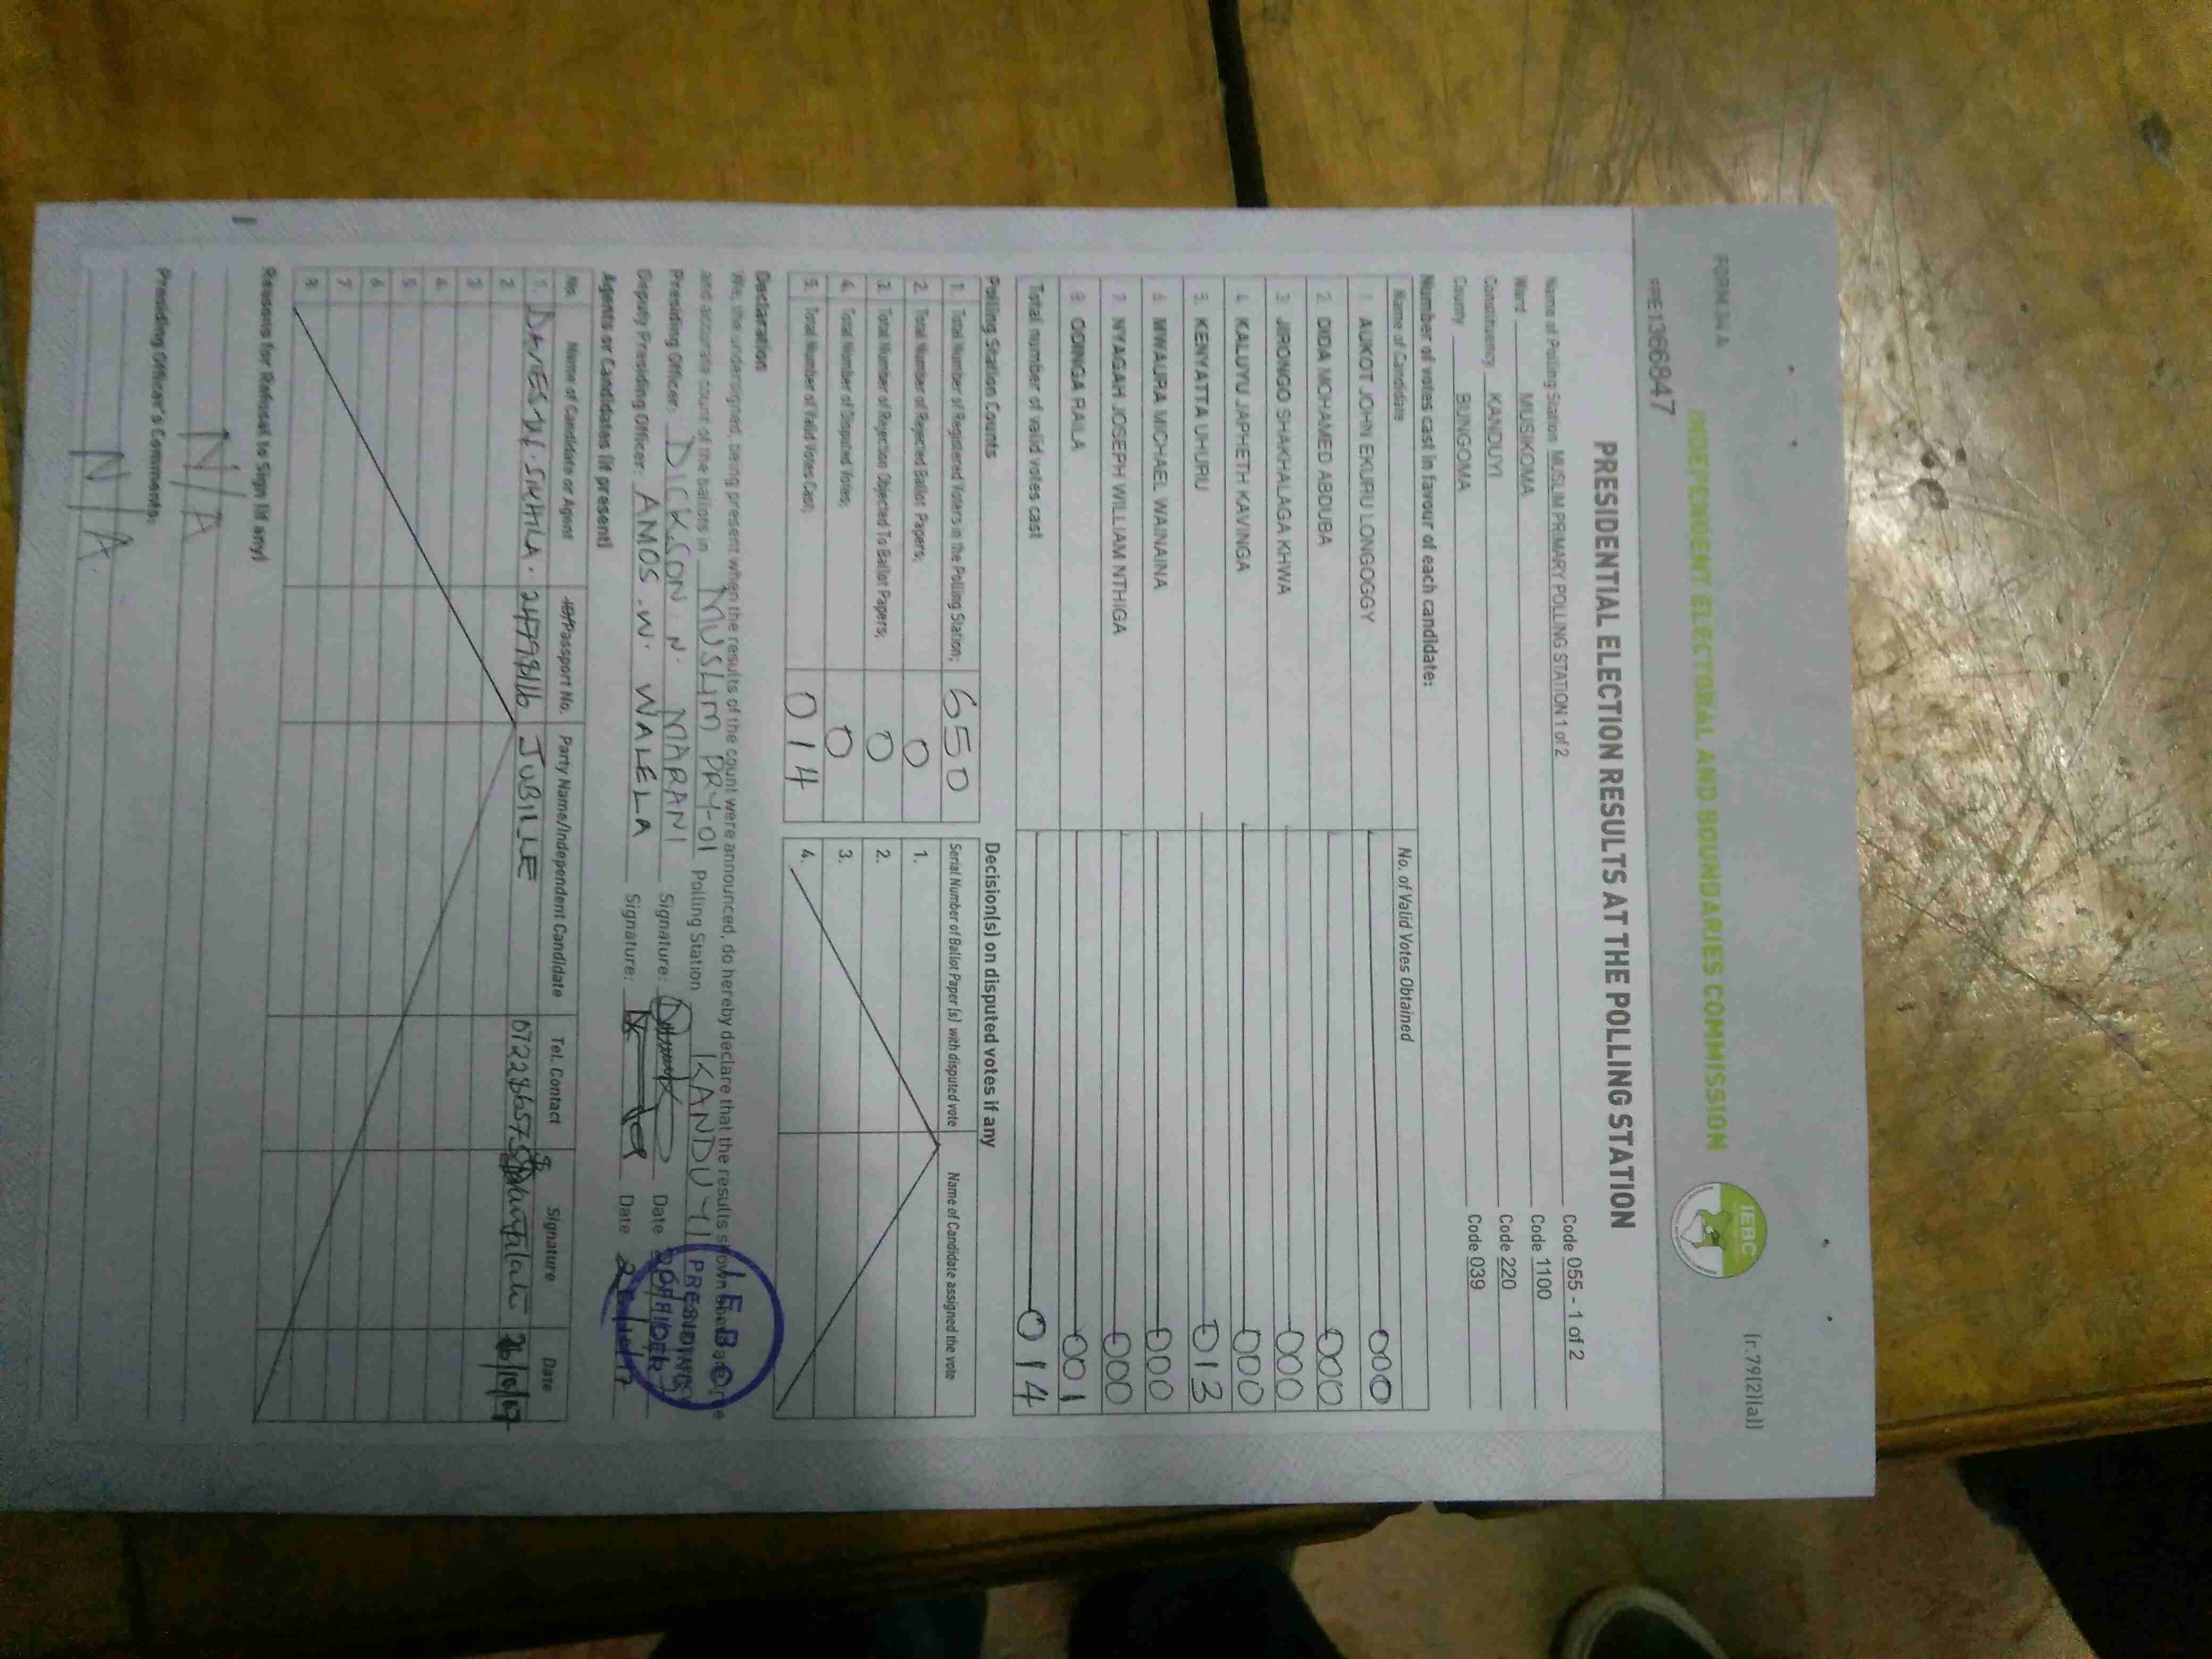 FORM 34 A
(r.79(2)(a))
INDEPENDENT ELECTORAL AND BOUNDARIES COMMISSION
IEBC
PRE136847
PRESIDENTIAL ELECTION RESULTS AT THE POLLING STATION
Name of Polling Station MUSLIM PRIMARY POLLING STATION 1 of 2 Code 055 - 1 of 2
Ward MUSIKOMA Code 1100
Constituency KANDUYI Code 220
County BUNGOMA Code 039
Number of votes cast in favour of each candidate:
Name of Candidate No. of Valid Votes Obtained
1. AUKOT JOHN EKURU LONGOGGY 000
2. DIDA MOHAMED ABDUBA 000
3. JIRONGO SHAKHALAGA KHWA 000
4. KALUYU JAPHETH KAVINGA 000
5. KENYATTA UHURU 013
6. MWAURA MICHAEL WAINAINA 000
7. NYAGAH JOSEPH WILLIAM NTHIGA 000
8. ODINGA RAILA 001
Total number of valid votes cast 014
Polling Station Counts
1. Total Number of Registered Voters in the Polling Station; 650
2. Total Number of Rejected Ballot Papers; 0
3. Total Number of Rejection Objected To Ballot Papers; 0
4. Total Number of Disputed Votes; 0
5. Total Number of Valid Votes Cast; 014
Decision(s) on disputed votes if any
Serial Number of Ballot Paper (s) with disputed vote Name of Candidate assigned the vote
1.
2.
3.
4.
Declaration
We, the undersigned, being present when the results of the count were announced, do hereby declare that the results shown above are true
and accurate count of the ballots in MUSLIM PRY-01 Polling Station KANDUYI
Presiding Officer: DICKSON N. MARANI Signature: Date
Deputy Presiding Officer: AMOS .W. WALELA Signature: Date 26/10/17
IEBC
PRESIDING
OFFICER
Agents or Candidates (if present)
No. Name of Candidate or Agent ID/Passport No. Party Name/Independent Candidate Tel. Contact Signature Date
1. JUBILLE
2.
3.
4.
5.
6.
7.
8.
Reasons for Refusal to Sign (if any)
N/A
Presiding Officer's Comments:
N/A.